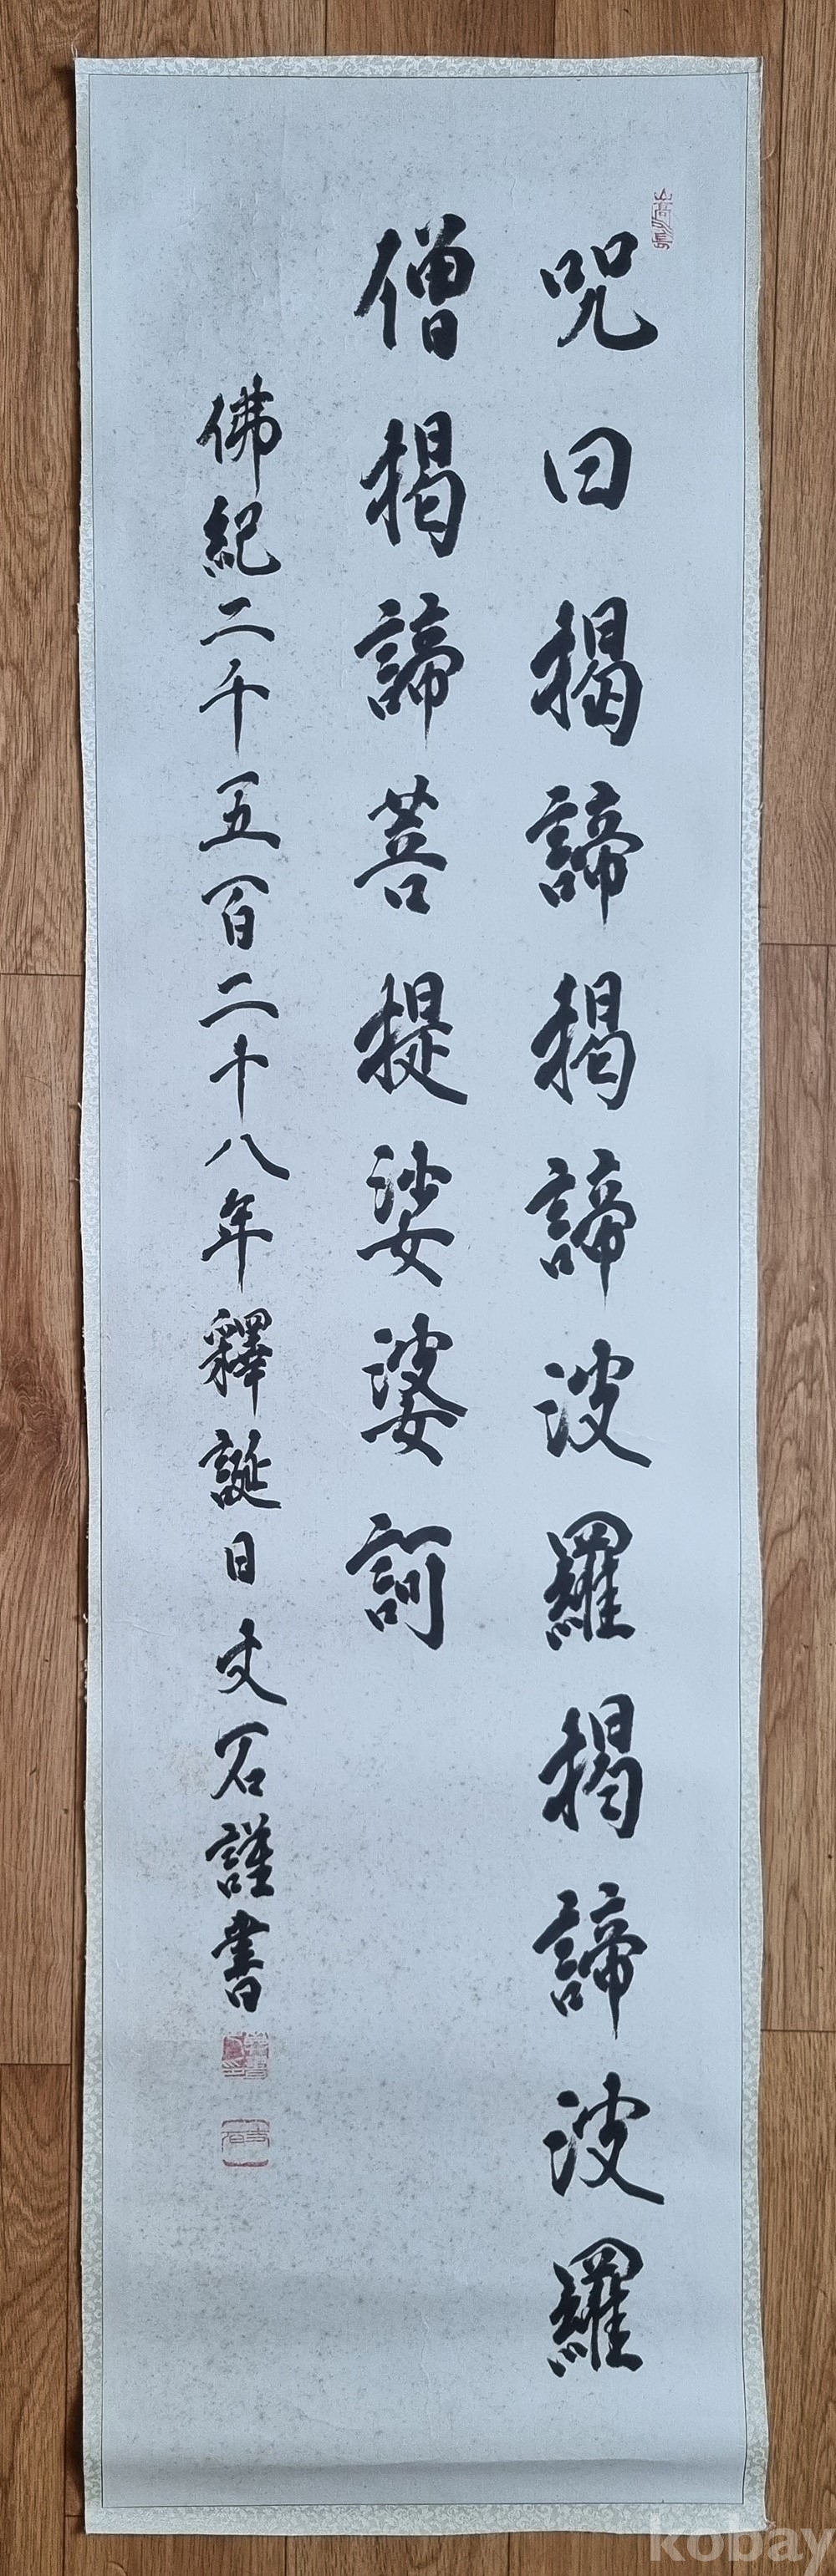 咒曰揭諦揭諦波羅揭諦波羅
僧揭諦菩提娑婆訶
佛紀二千五百二十八年釋誕日文石謹書
kobay